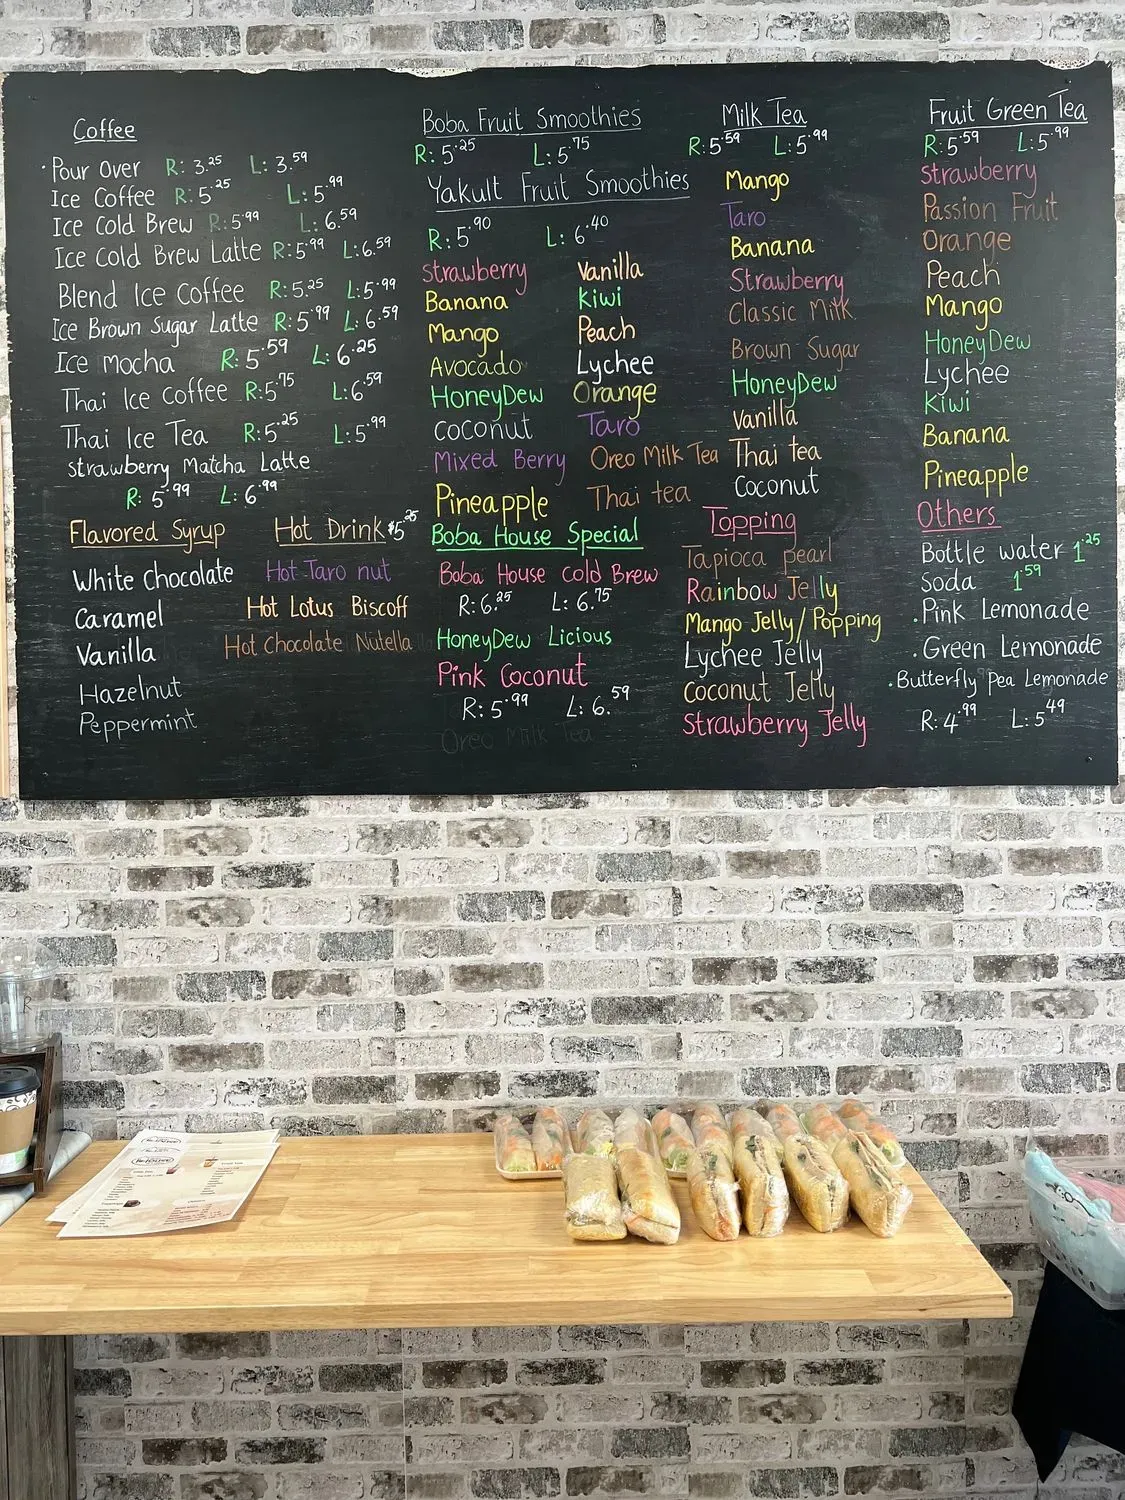 Coffee
· Pour Over R: 3.25 L: 3.59
Ice Coffee R: 5.25 L: 5.99
Ice Cold Brew R: 5.99 L: 6.59
Ice Cold Brew Latte R: 5.99 L: 6.59
Blend Ice Coffee R: 5.25 L: 5.99
Ice Brown Sugar Latte R: 5.99 L: 6.59
Ice mocha R: 5.59 L: 6.25
Thai Ice Coffee R: 5.75 L: 6.59
Thai Ice Tea R: 5.25 L: 5.99
strawberry Matcha Latte
R: 5.99 L: 6.99
Flavored Syrup
White Chocolate
Caramel
Vanilla
Hazelnut
Peppermint
Hot Drink $5.25
Hot Taro nut
Hot Lotus Biscoff
Hot Chocolate Nutella
Boba Fruit Smoothies
R: 5.25 L: 5.75
Yakult Fruit Smoothies
R: 5.90 L: 6.40
strawberry
Banana
Mango
Avocado
HoneyDew
coconut
Mixed Berry
Pineapple
Vanilla
Kiwi
Peach
Lychee
Orange
Taro
Oreo Milk Tea
Thai tea
Boba House Special
Boba House Cold Brew
R: 6.25 L: 6.75
HoneyDew Licious
Pink Coconut
R: 5.99 L: 6.59
Oreo Milk Tea
Milk Tea
R: 5.59 L: 5.99
Mango
Taro
Banana
Strawberry
Classic Milk
Brown Sugar
HoneyDew
Vanilla
Thai tea
Coconut
Topping
Tapioca pearl
Rainbow Jelly
Mango Jelly/Popping
Lychee Jelly
Coconut Jelly
Strawberry Jelly
Fruit Green Tea
R: 5.59 L: 5.99
Strawberry
Passion Fruit
Orange
Peach
Mango
HoneyDew
Lychee
Kiwi
Banana
Pineapple
Others
Bottle water 1.25
Soda 1.59
. Pink Lemonade
. Green Lemonade
. Butterfly pea Lemonade
R: 4.99 L: 5.49